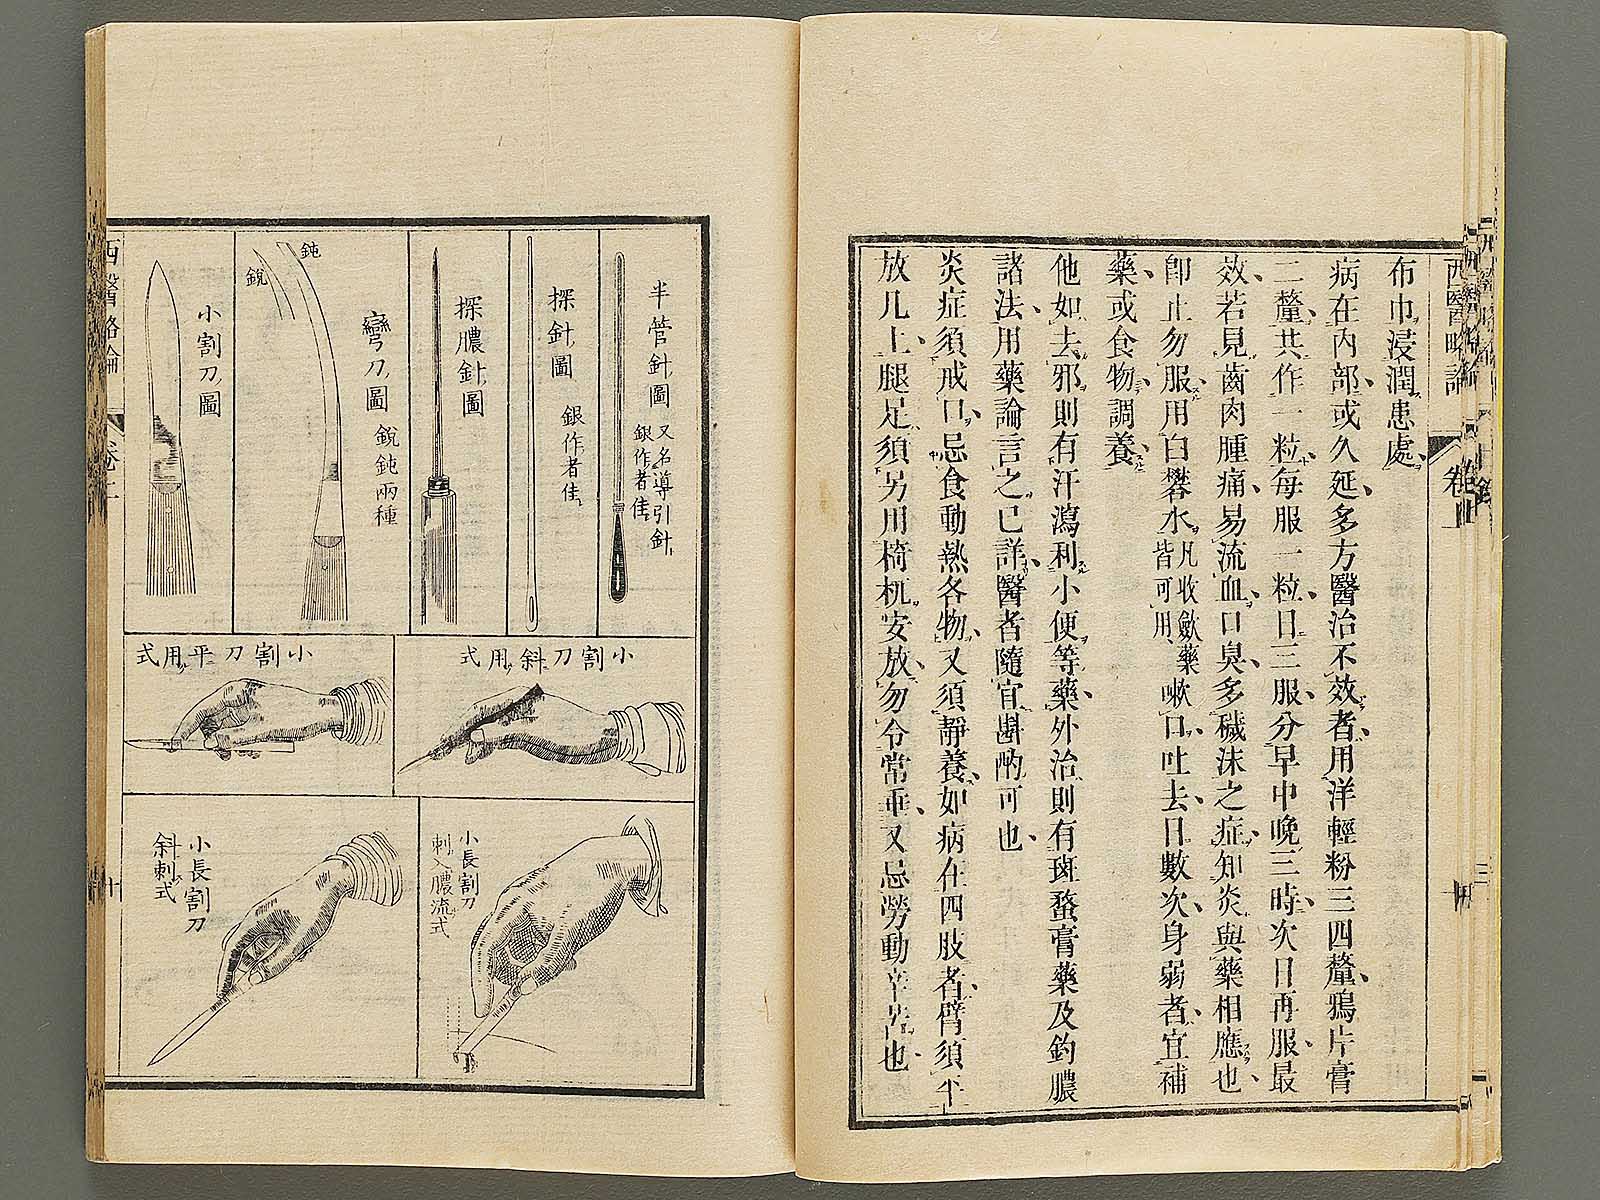 西醫略論
卷上
布巾浸潤患處
病在內部或久延多方醫治不效者用洋輕粉三四釐鴉片膏
二釐共作一粒每服一粒日三服分早中晚三時次日再服最
效若見齒肉腫痛易流血口臭多穢沫之症知炎與藥相應也
卽止勿服用白礬水凡收斂藥皆可用嗽口吐去日數次身弱者宜補
藥或食物調養
他如去邪則有汗瀉利小便等藥外治則有斑蝥膏藥及釣膿
諸法用藥論言之已詳醫者隨宜斟酌可也
炎症須戒口忌食動熱各物又須靜養如病在四肢者臂須平
放几上腿足須另用椅杌安放勿令常垂又忌勞動辛苦也
半管針圖
又名導引針
銀作者佳
探針圖
銀作者佳
探膿針圖
彎刀圖
銳鈍兩種
鈍
銳
小割刀圖
小割刀斜用式
小割刀平用式
小長割刀
刺入膿流式
小長割刀
斜刺式
西醫略論
卷上